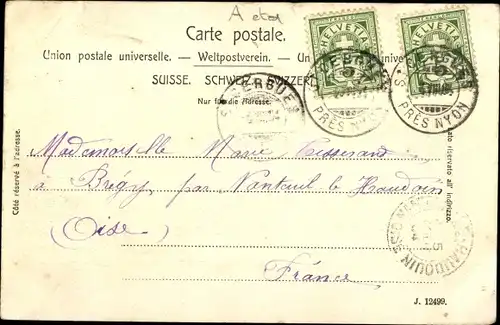 Carte postale.
Union postale universelle. — Weltpostverein. — Un
SUISSE. SCHWEIZ. SVIZZERA
Nur für die Adresse.
HELVETIA
HELVETIA
5
5
ST CERGUES
PRÈS NYON
PRÈS NYON
Mademoiselle Marie Tisserant
à Brégy, par Nanteuil le Haudoin
(Oise)
France
Côté réservé à l'adresse.
lato riservato all' indirizzo.
J. 12499.